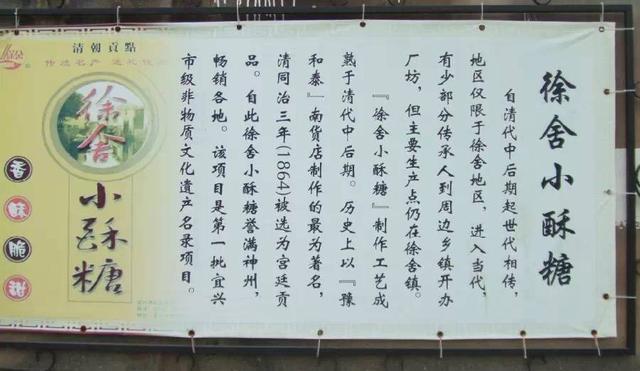 徐舍小酥糖
自清代中后期起世代相传，
地区仅限于徐舍地区，进入当代，
有少部分传承人到周边乡镇开办
厂坊，但主要生产点仍在徐舍镇。
『徐舍小酥糖』制作工艺成
熟于清代中后期。历史上以『豫
和泰』南货店制作的最为著名，
清同治三年(1864)被选为宫廷贡
品。自此徐舍小酥糖誉满神州，
畅销各地。该项目是第一批宜兴
市级非物质文化遗产名录项目。
清朝贡點
徐舍
小酥糖
香
酥
脆
甜